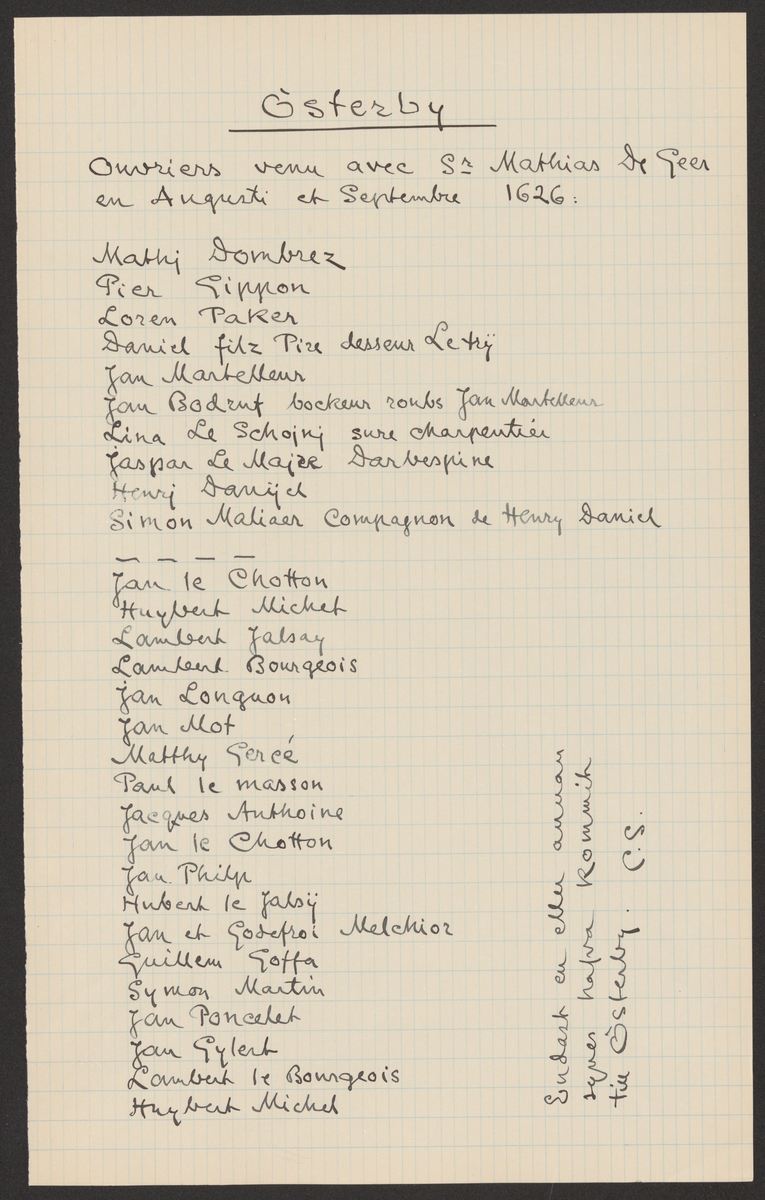 Österby
Ouvriers venu avec Sr Mathias De Geer
en Augusti et Septembre 1626:
Mathij Dombrez
Pier Gippon
Loren Paker
Daniel filz Pire desseur Letrÿ
Jan Martelleur
Jan Bodruf bockeur roubs Jan Martelleur
Lina Le Schojnj sure charpentiér
Jaspar Le Majre Darbespine
Henrj Danijel
Simon Maliaer Compagnon de Henry Daniel
— — — —
Jan le Chotton
Huybert Michel
Lambert Jalsay
Lambert Bourgeois
Jan Longuon
Jan Mot
Matthy Gercé
Paul le masson
Jacques Anthoine
Jan le Chotton
Jan Philp
Hubert le Jalsÿ
Jan et Godefroi Melchior
Guillem Goffa
Symon Martin
Jan Poncelet
Jan Gylert
Lambert le Bourgeois
Huybert Michel
Endast en eller annan
synes hafva kommit
till Österby. C.S.